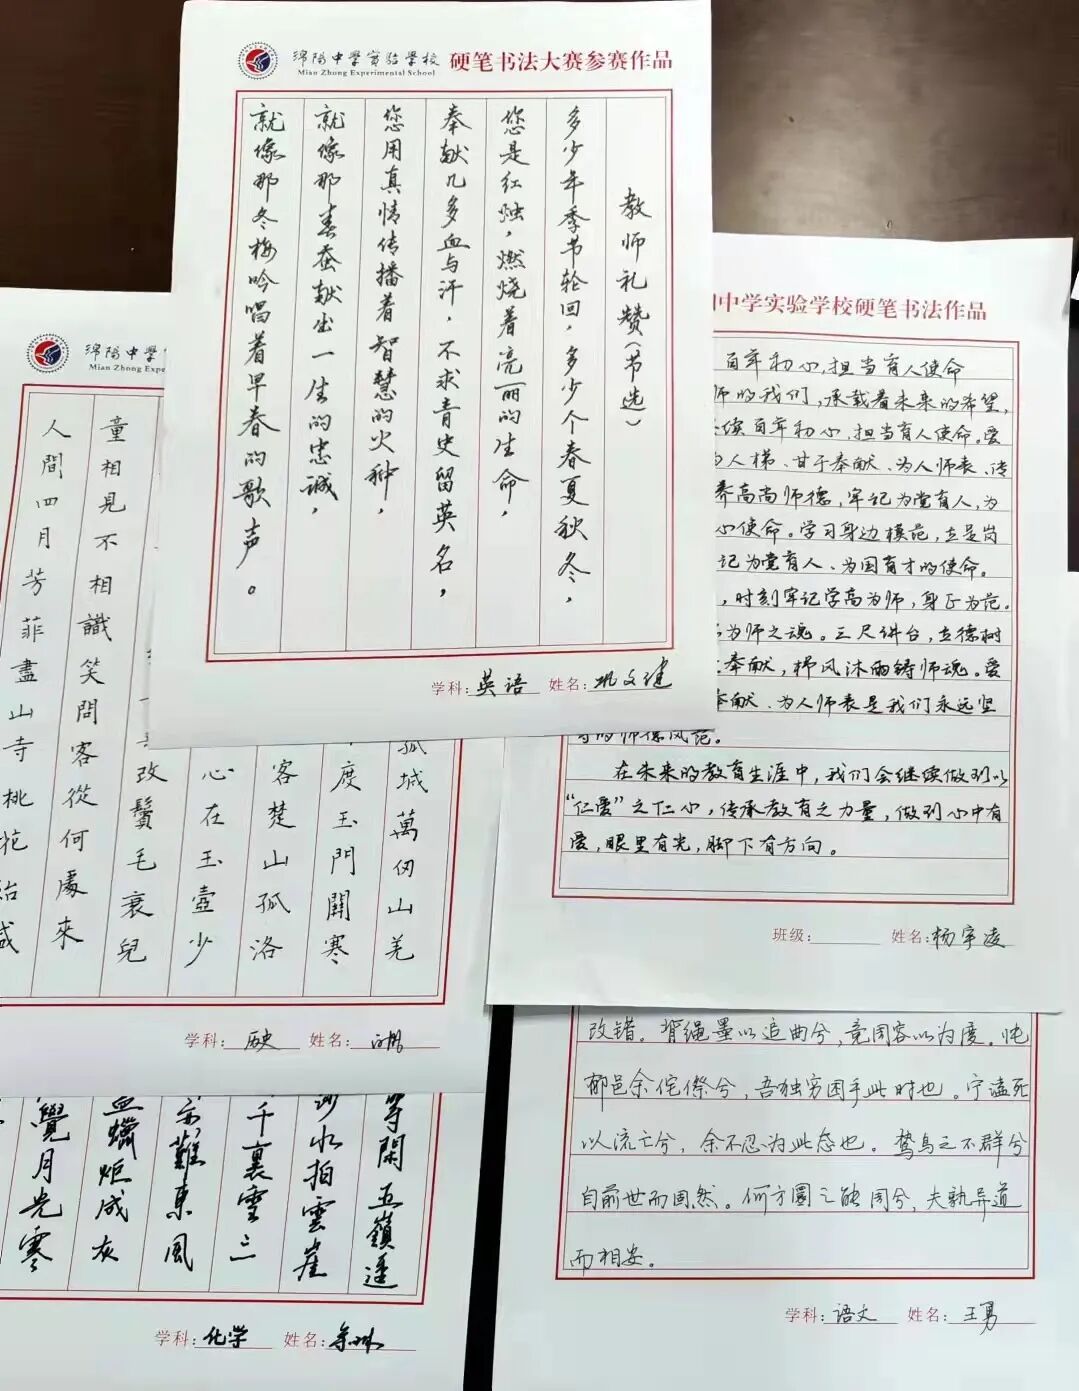 绵阳中学实验学校 硬笔书法大赛参赛作品
Mian Zhong Experimental School
教师礼赞(节选)
多少年季节轮回,多少个春夏秋冬,
您是红烛,燃烧着亮丽的生命,
奉献几多血与汗,不求青史留英名,
您用真情传播着智慧的火种,
就像那春蚕献出一生的忠诚,
就像那冬梅吟唱着早春的歌声。
学科:英语 姓名:巩文健
中学实验学校硬笔书法作品
百年初心,担当育人使命
师的我们,承载着未来的希望,
续百年初心,担当育人使命。爱
为人梯、甘于奉献、为人师表、传
养高尚师德,牢记为党育人,为
心使命。学习身边模范,立足岗
记为党育人、为国育才的使命。
,时刻牢记学高为师,身正为范。
为师之魂。三尺讲台,立德树
奉献,栉风沐雨铸师魂。爱
奉献、为人师表是我们永远坚
的师德风范。
在未来的教育生涯中,我们会继续做到以
“仁爱”之仁心,传承教育之力量,做到心中有
爱,眼里有光,脚下有方向。
班级: 姓名:杨宇凌
绵阳中学
Mian Zhong Exper
孤城萬仞山羌
度玉門關寒
客楚山孤洛
心在玉壺少
改鬢毛衰兒
童相見不相識笑問客從何處來
人間四月芳菲盡山寺桃花始盛
学科:历史 姓名:
等閑五嶺逶
沙水拍雲崖
千裏雪三
亦難東風
蠟炬成灰
覺月光寒
学科:化学 姓名:
改错。背绳墨以追曲兮,竞周容以为度。忳
郁邑余侘傺兮,吾独穷困乎此时也。宁溘死
以流亡兮,余不忍为此态也。鸷鸟之不群兮
自前世而固然。何方圜之能周兮,夫孰异道
而相安。
学科:语文 姓名:王勇